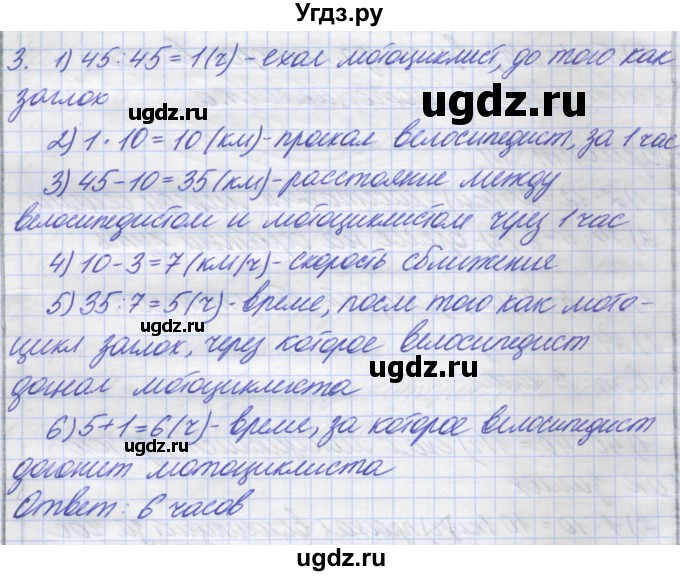 Угдз.ру
3. 1) 45:45=1(ч) - ехал мотоциклист, до того как
заглох
ugdz.ru
2) 1·10=10(км) - проехал велосипедист, за 1 час
3) 45-10=35(км) - расстояние между
ugdz.ru
велосипедистом и мотоциклистом через 1 час
4) 10-3=7(км/ч) - скорость сближения
5) 35:7=5(ч) - время, после того как мото-
ugdz.ru
цикл заглох, через которое велосипедист
ugdz.ru
догнал мотоциклиста
6) 5+1=6(ч) - время, за которое велосипедист
ugdz.ru
догонит мотоциклиста
Ответ: 6 часов
ugdz.ru
ugdz.ru